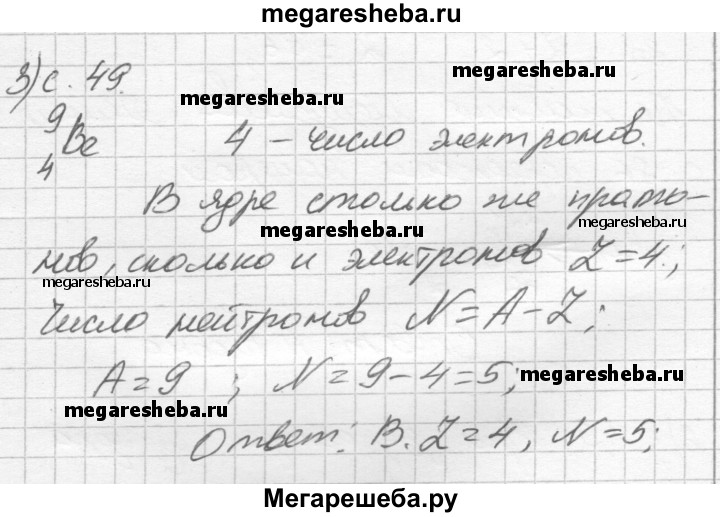 megaresheba.ru
3) с. 49.
megaresheba.ru
⁹₄Be 4 – число электронов.
В ядре столько же прото-
megaresheba.ru
megaresheba.ru
нов, сколько и электронов Z = 4;
megaresheba.ru
Число нейтронов N = A – Z;
A = 9 ; N = 9 – 4 = 5;
megaresheba.ru
megaresheba.ru
Ответ: В. Z = 4, N = 5;
Мегарешеба.ру